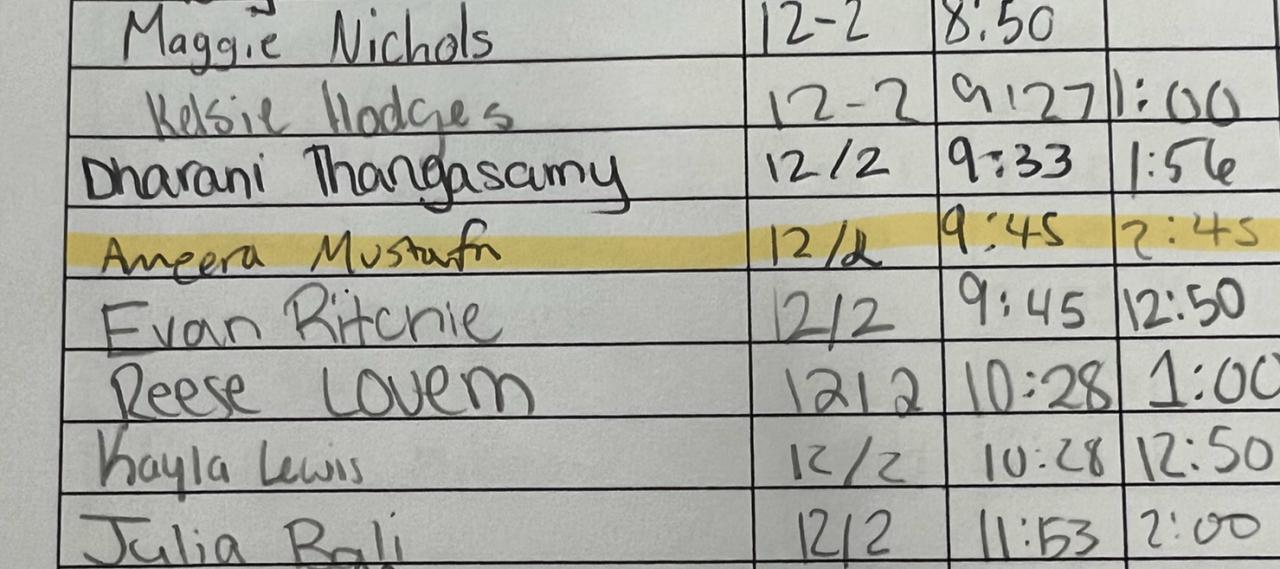 Maggie Nichols 12-2 8:50
Kelsie Hodges 12-2 9:27 1:00
Dharani Thangasamy 12/2 9:33 1:56
Ameera Mustafa 12/2 9:45 2:45
Evan Ritchie 12/2 9:45 12:50
Reese Lovern 12/2 10:28 1:00
Kayla Lewis 12/2 10:28 12:50
Julia Bali 12/2 11:53 2:00